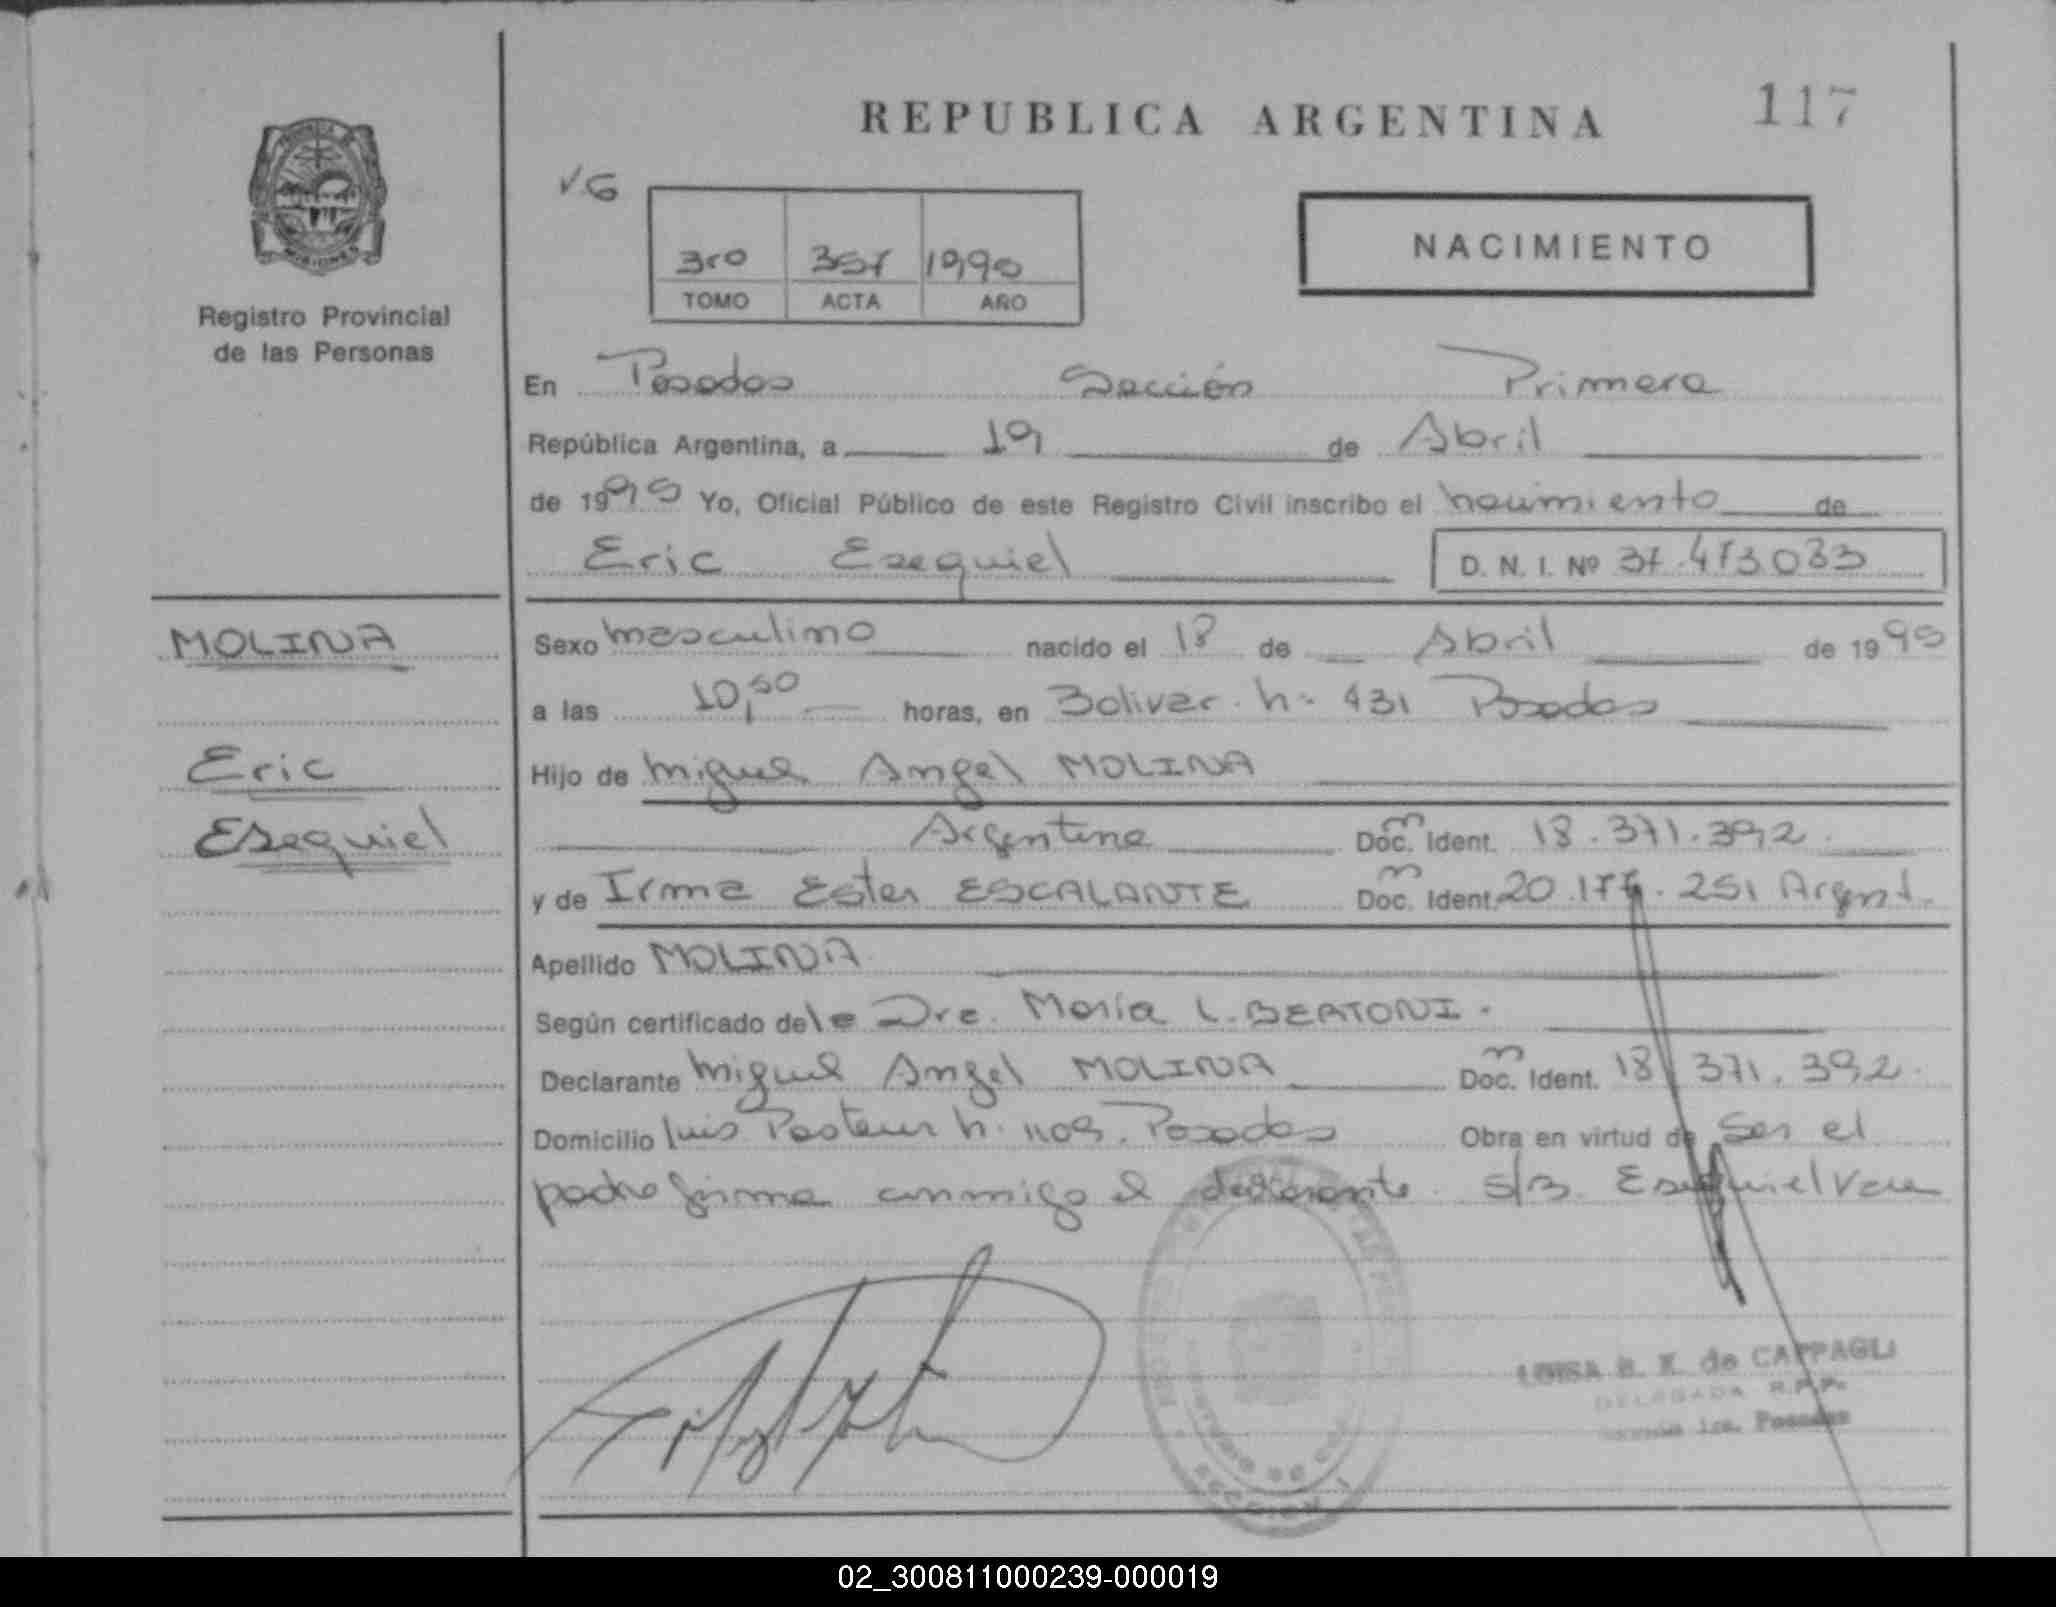 REPUBLICA ARGENTINA
117
VG
3ro 357 1990
TOMO ACTA AÑO
NACIMIENTO
Registro Provincial
de las Personas
En Posadas Sección Primera
República Argentina, a 19 de Abril
de 1990 Yo, Oficial Público de este Registro Civil inscribo el nacimiento de
Eric Esequiel
D. N. I. Nº 37.473.033
MOLINA
Eric
Esequiel
Sexo masculino nacido el 18 de Abril de 1990
a las 10,50 horas, en Bolivar nº 431 Posadas
Hijo de Miguel Angel MOLINA
Argentina Doc. Ident. m 18.371.392
y de Irma Ester ESCALANTE Doc. Ident. m 20.177.251 Argent.
Apellido MOLINA
Según certificado de la Dra. María L. BERTONI.
Declarante Miguel Angel MOLINA Doc. Ident. m 18.371.392.
Domicilio Luis Pasteur n. 1109. Posadas Obra en virtud de Ser el
padre firma conmigo el declarante. s/B. Esequiel Vale
LUISA B. K. de CAPPAGLI
DELEGADA R.P.P.
Sección 1ra. Posadas
SECCION 1
02_300811000239-000019